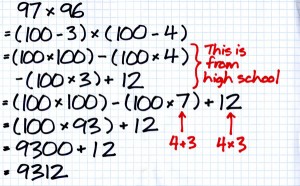 97 × 96
= (100 - 3) × (100 - 4)
= (100 × 100) - (100 × 4)
- (100 × 3) + 12
This is
from
high school
= (100 × 100) - (100 × 7) + 12
= (100 × 93) + 12
4+3
4×3
= 9300 + 12
= 9312